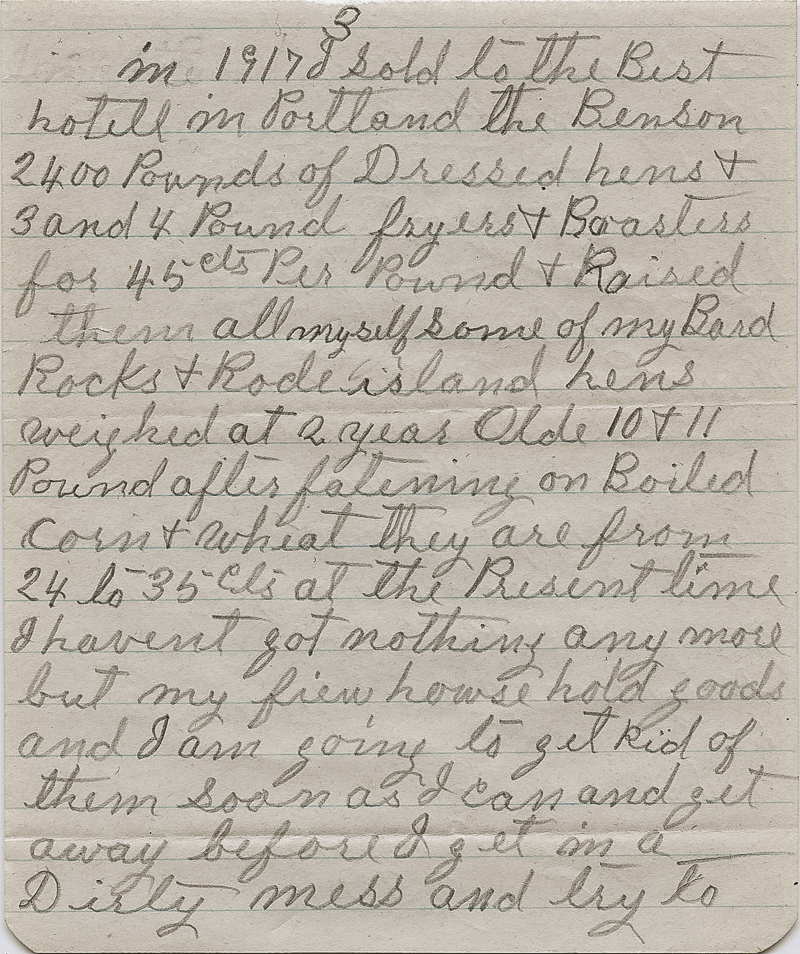 3
in 1917 I sold to the Best
hotell in Portland the Benson
2400 Pounds of Dressed hens &
3 and 4 Pound fryers & Roasters
for 45 cts Per Pound & Raised
them all myself some of my Bard
Rocks & Rode island hens
weighed at 2 year Olde 10 & 11
Pound after fatening on Boiled
Corn & wheat they are from
24 to 35 cts at the Present time
I havent got nothing any more
but my fiew howse hold goods
and I am going to get rid of
them soon as I can and get
away before I get in a
Dirty mess and try to